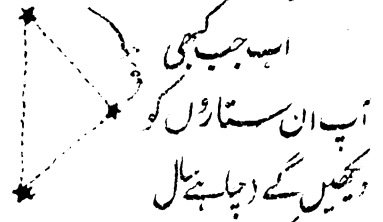 اب جب کبھی
آپ ان ستاروں کو
دیکھیں گے (چاہے سال